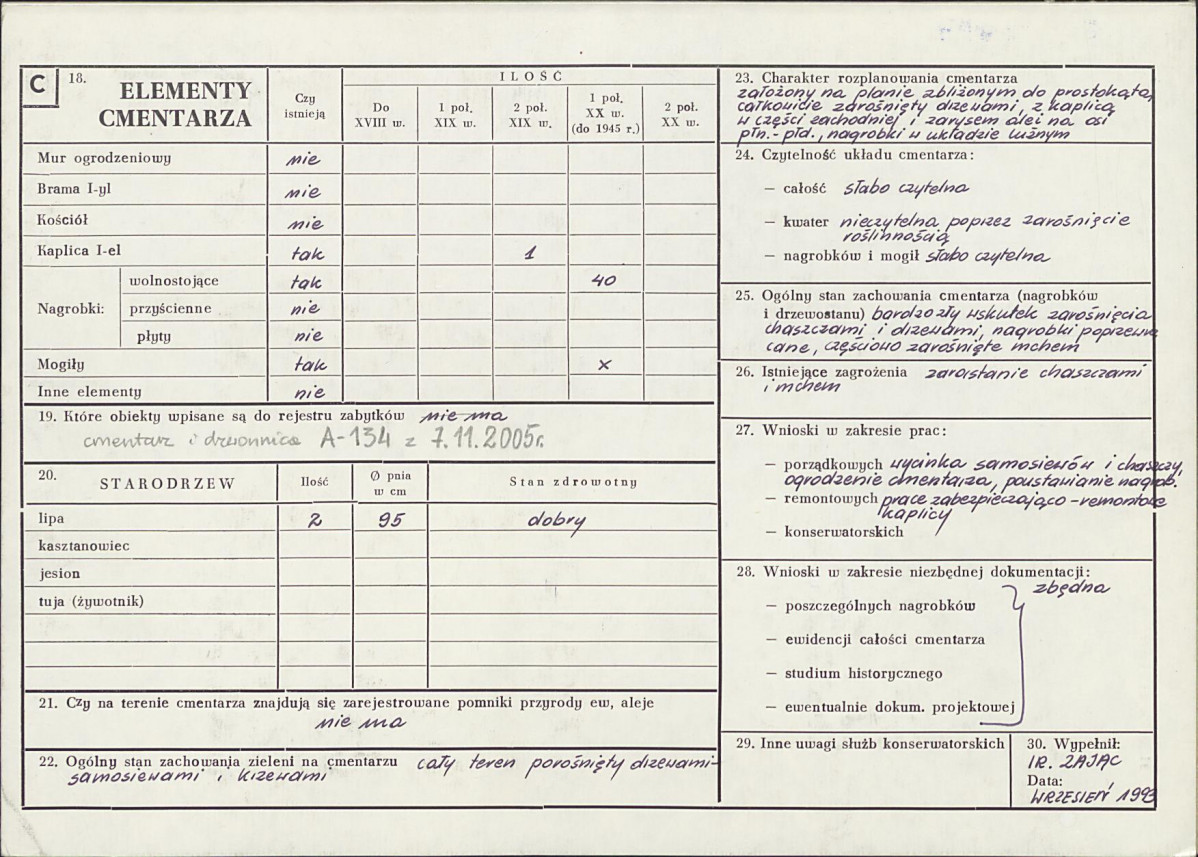 C
18. ELEMENTY
CMENTARZA
Czy
istnieją
ILOŚĆ
Do
XVIII w.
1 poł.
XIX w.
2 poł.
XIX w.
1 poł.
XX w.
(do 1945 r.)
2 poł.
XX w.
Mur ogrodzeniowy nie
Brama I-yl nie
Kościół nie
Kaplica I-el tak 1
Nagrobki:
wolnostojące tak 40
przyścienne nie
płyty nie
Mogiły tak x
Inne elementy nie
19. Które obiekty wpisane są do rejestru zabytków nie ma
cmentarz i dzwonnica A-134 z 7.11.2005r.
20. STARODRZEW
Ilość
Ø pnia
w cm
Stan zdrowotny
lipa 2 95 dobry
kasztanowiec
jesion
tuja (żywotnik)
21. Czy na terenie cmentarza znajdują się zarejestrowane pomniki przyrody ew, aleje
nie ma
22. Ogólny stan zachowania zieleni na cmentarzu cały teren porośnięty drzewami-
samosiewami i krzewami
23. Charakter rozplanowania cmentarza
założony na planie zbliżonym do prostokąta,
całkowicie zarośnięty drzewami, z kaplicą
w części zachodniej i zarysem alei na osi
płn.-płd., nagrobki w układzie luźnym
24. Czytelność układu cmentarza:
— całość słabo czytelna
— kwater nieczytelna poprzez zarośnięcie
roślinnością
— nagrobków i mogił słabo czytelna
25. Ogólny stan zachowania cmentarza (nagrobków
i drzewostanu) bardzo zły wskutek zarośnięcia
chaszczami i drzewami, nagrobki poprzewra
cane, częściowo zarośnięte mchem
26. Istniejące zagrożenia zarastanie chaszczami
i mchem
27. Wnioski w zakresie prac:
— porządkowych wycinka samosiewów i chaszczy,
ogrodzenie cmentarza, poustawianie nagrob.
— remontowych prace zabezpieczająco-remontowe
kaplicy
— konserwatorskich /
28. Wnioski w zakresie niezbędnej dokumentacji:
zbędna
— poszczególnych nagrobków
— ewidencji całości cmentarza
— studium historycznego
— ewentualnie dokum. projektowej
29. Inne uwagi służb konserwatorskich
30. Wypełnił:
IR. ZAJĄC
Data:
WRZESIEŃ 1993